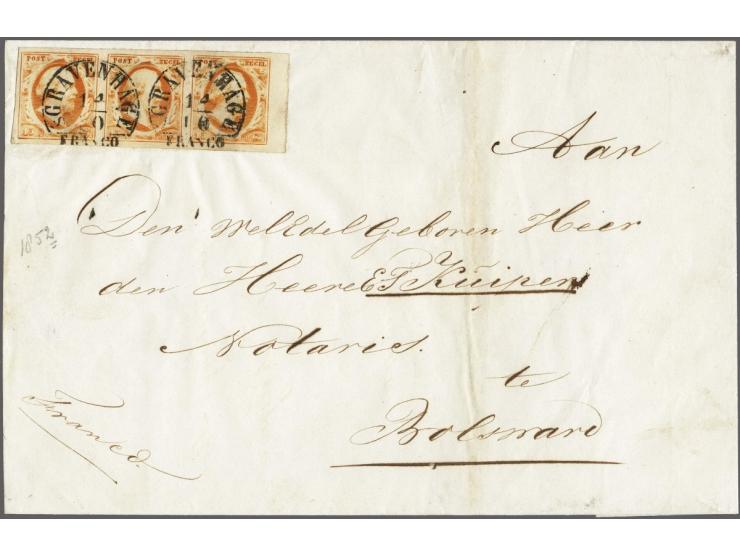 POST ZEGEL POST ZEGEL POST ZEGEL
'S GRAVENHAGE 'S GRAVENHAGE
FRANCO FRANCO
Aan
Den WelEdelGeboren Heer
den Heere E F Kuipers
Notaris.
te
Bolsward
1852
Franco.